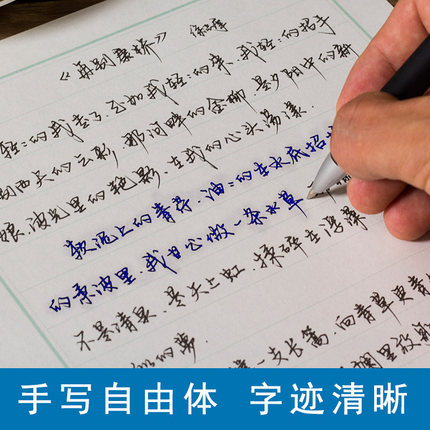 《再别康桥》 徐志摩
轻:的我走了,正如我轻:的来,我轻:的招手
别西天的云彩,那河畔的金柳 是夕阳中的新
娘,波光里的艳影,在我的心头荡漾.
软泥上的青荇,油:的在水底招
的柔波里,我甘心做一条水草
不是清泉,是天上虹 揉碎在浮藻
似的梦. 一支长篙,向青草更青
斓里放
手写自由体 字迹清晰